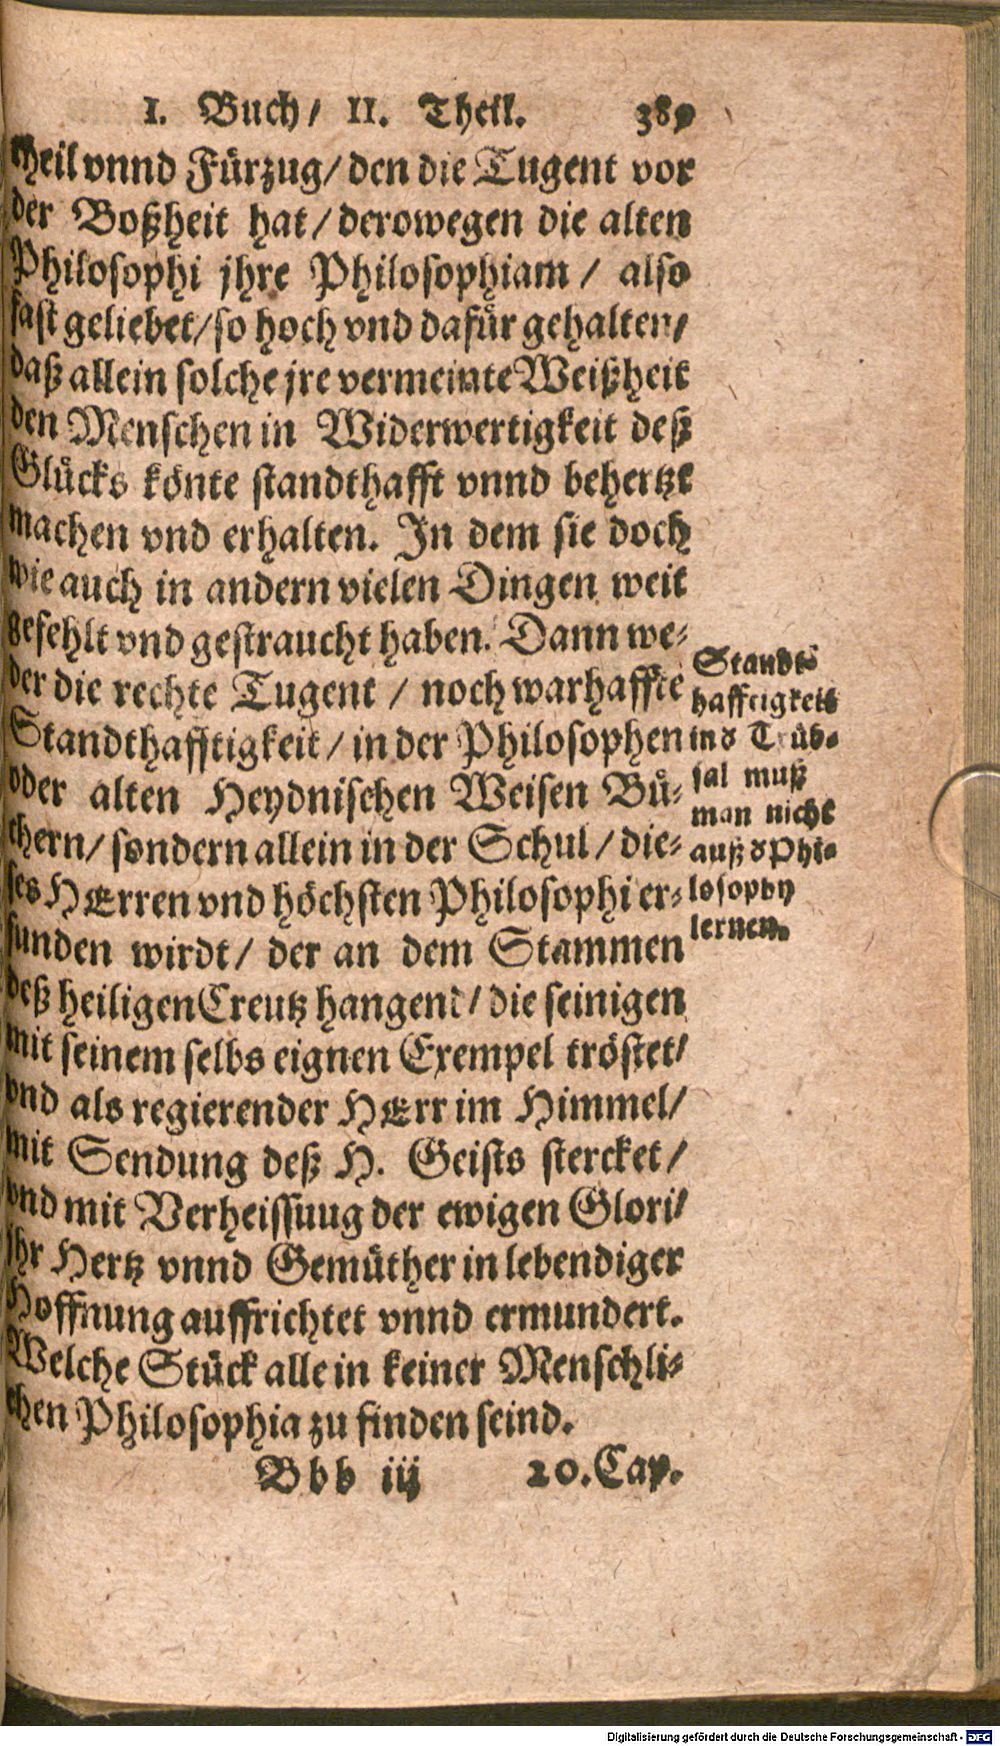 I. Buch/ II. Theil. 389
theil vnnd Fürzug/ den die Tugent vor
der Boßheit hat/ derowegen die alten
Philosophi jhre Philosophiam/ also
fast geliebet/ so hoch vnd dafür gehalten/
daß allein solche jre vermeinte Weißheit
den Menschen in Widerwertigkeit deß
Glücks könte standthafft vnnd behertzt
machen vnd erhalten. In dem sie doch
wie auch in andern vielen Dingen weit
gefehlt vnd gestraucht haben. Dann we⸗
der die rechte Tugent/ noch warhaffte
Standthafftigkeit/ in der Philosophen
oder alten Heydnischen Weisen Bü⸗
chern/ sondern allein in der Schul/ die⸗
ses HErren vnd höchsten Philosophi er⸗
funden wirdt/ der an dem Stammen
deß heiligen Creutz hangend/ die seinigen
mit seinem selbs eignen Exempel tröstet/
vnd als regierender HErr im Himmel/
mit Sendung deß H. Geists stercket/
vnd mit Verheissuug der ewigen Glori/
ihr Hertz vnnd Gemüther in lebendiger
Hoffnung auffrichtet vnnd ermundert.
Welche Stück alle in keiner Menschli⸗
chen Philosophia zu finden seind.
Standt⸗
hafftigkeit
in d Trüb⸗
sal muß
man nicht
auß d Phi⸗
losophy
lernen.
Bbb iij 20. Cap.
Digitalisierung gefördert durch die Deutsche Forschungsgemeinschaft - DFG